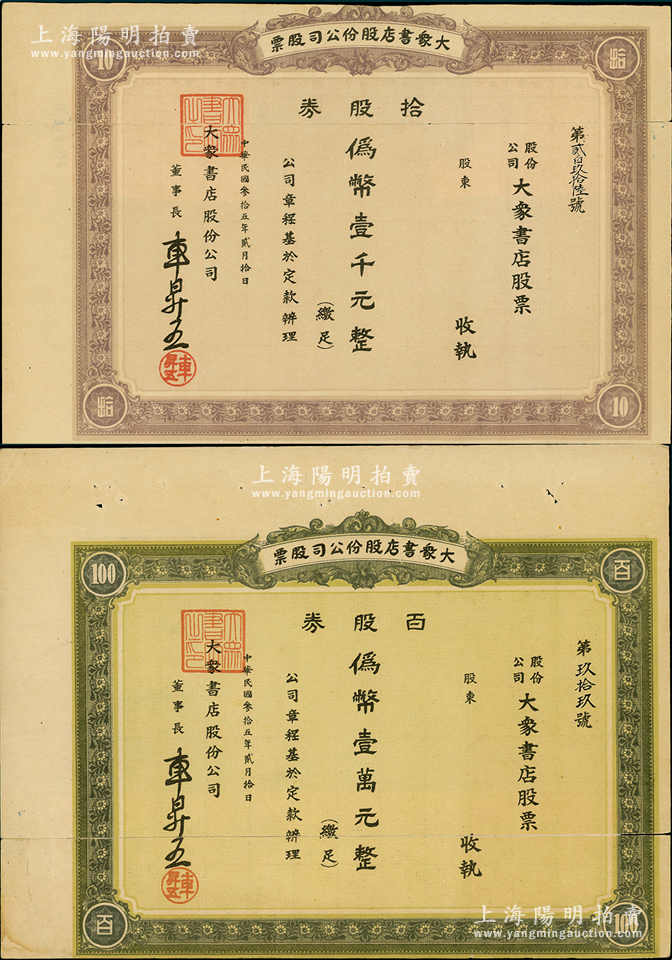 上海陽明拍賣
www.yangmingauction.com
大衆書店股份公司股票
10
拾
拾股券
第貳百玖拾陸號
股份公司大衆書店股票
股東
收執
僞幣壹千元整
(繳足)
公司章程基於定款辨理
中華民國參拾五年貳月拾日
大衆書店股份公司
董事長
車昇五
車昇五
拾
10
上海陽明拍賣
www.yangmingauction.com
大衆書店股份公司股票
100
百
百股券
第玖拾玖號
股份公司大衆書店股票
股東
收執
僞幣壹萬元整
(繳足)
公司章程基於定款辨理
中華民國參拾五年貳月拾日
大衆書店股份公司
董事長
車昇五
車昇五
百
100
上海陽明拍賣
www.yangmingauction.com